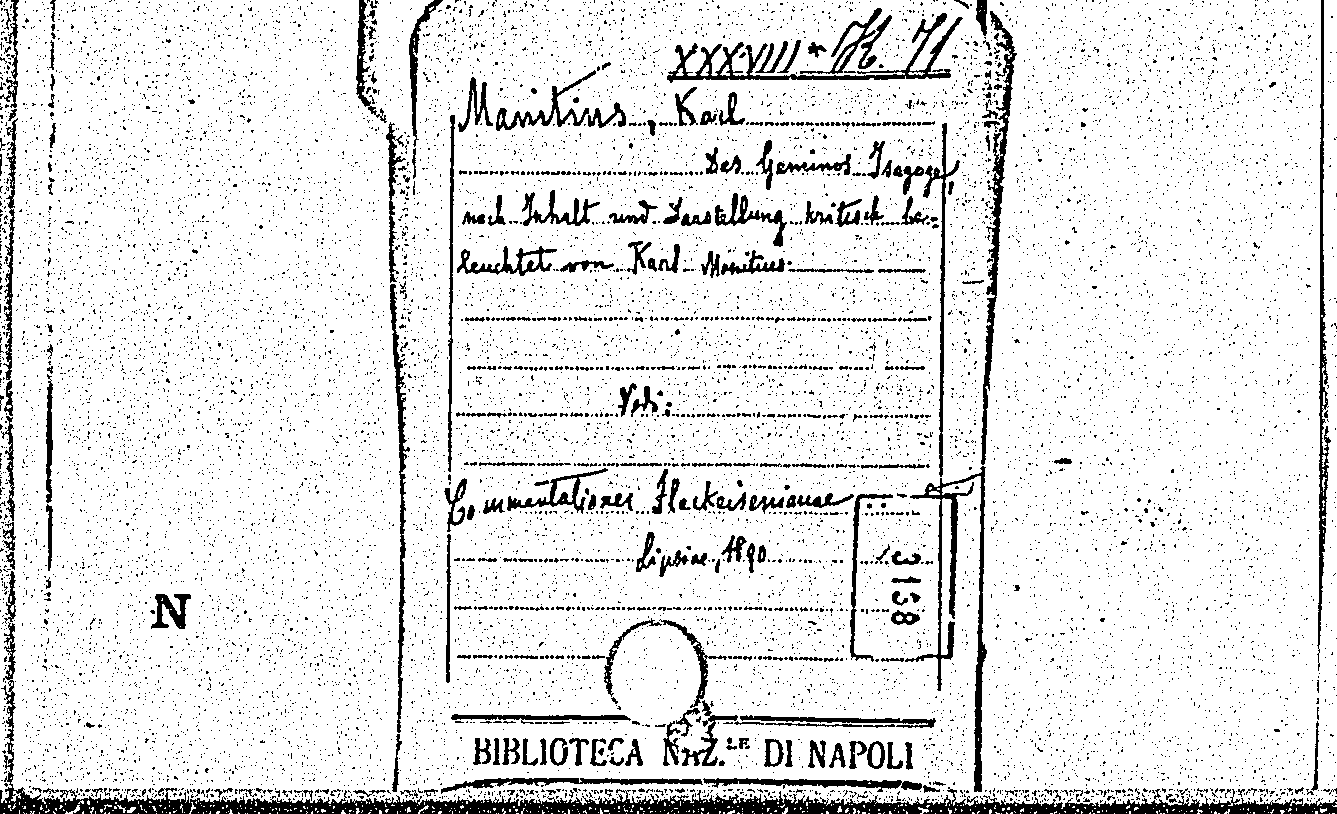 XXXVIII * H. 71
Manitius, Karl
Des Geminos Isagoge,
nach Inhalt und Darstellung kritisch be-
leuchtet von Karl Manitius.
Vedi:
Commentationes Fleckeisenianae
Lipsiae, 1890
3138
N
BIBLIOTECA NAZ.LE DI NAPOLI